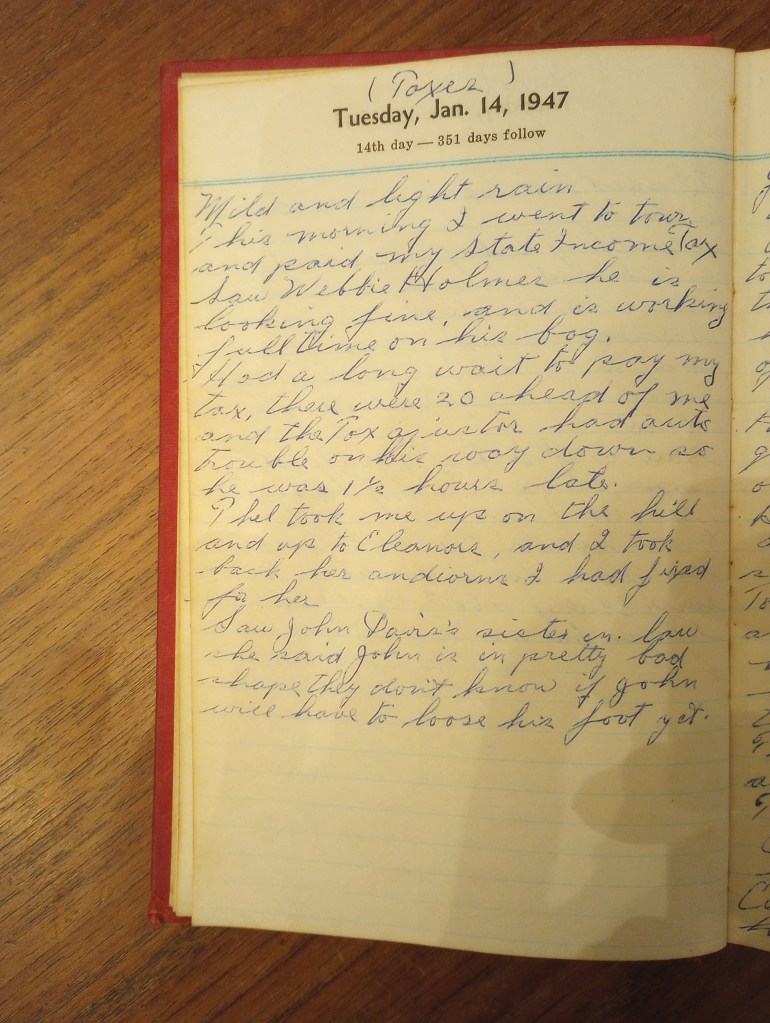 (Taxes)
Tuesday, Jan. 14, 1947
14th day — 351 days follow
Mild and light rain
This morning I went to town
and paid my State Income Tax
Saw Webbie Holmes he is
looking fine, and is working
full time on his bog.
Had a long wait to pay my
tax, there were 20 ahead of me
and the Tax ajustor had auto
trouble on his way down so
he was 1 1/2 hours late.
Thel took me up on the hill
and up to Eleanors, and I took
back her andiorns I had fixed
for her
Saw John Davis's sister in. law
she said John is in pretty bad
shape they don't know if John
will have to loose his foot yet.